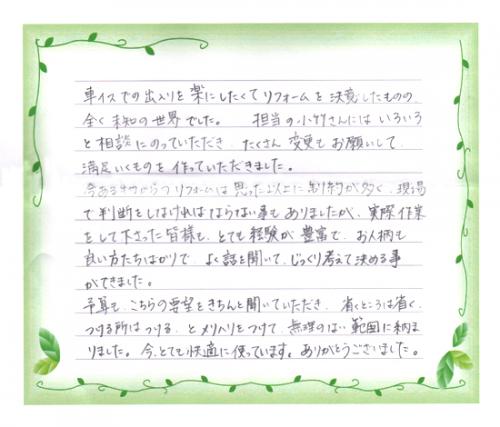 車イスでの出入りを楽にしたくてリフォームを決意したものの、
全く未知の世界でした。 担当の小竹さんにはいろいろ
と相談にのっていただき、たくさん変更もお願いして、
満足いくものを作っていただきました。
今あるものからのリフォームは思った以上に制約が多く、現場
で判断をしなければならない事もありましたが、実際作業
をして下さった皆様も、とても経験が豊富で、お人柄も
良い方たちばかりで よく話を聞いて、じっくり考えて決める事
ができました。
予算も、こちらの要望をきちんと聞いていただき、省くところは省く、
つける所はつける、とメリハリをつけて、無理のない範囲に納ま
りました。今、とても快適に使っています。ありがとうございました。